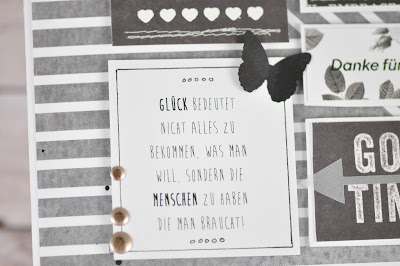 Danke für
GLÜCK BEDEUTET
NICHT ALLES ZU
BEKOMMEN, WAS MAN
WILL, SONDERN DIE
MENSCHEN ZU HABEN
DIE MAN BRAUCHT!
GO
TIN